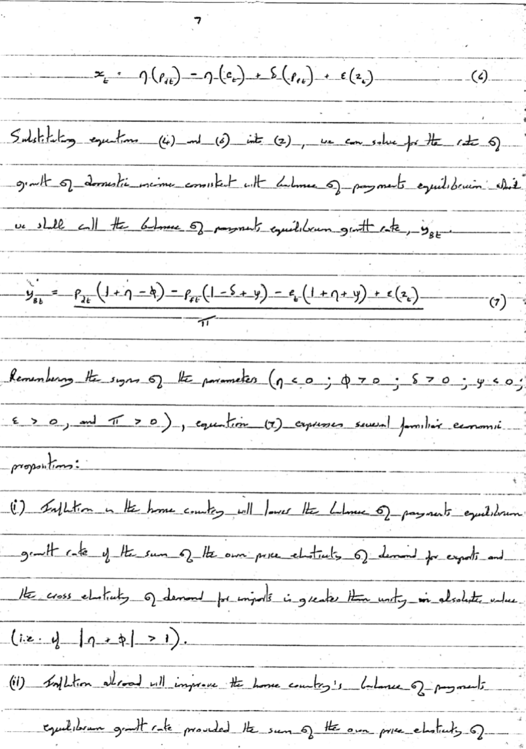 7
x_t = η(p_dt) - η(e_t) + δ(p_ft) + ε(z_t) (6)
Substituting equations (4) and (6) into (2), we can solve for the rate of
growth of domestic income consistent with balance of payments equilibrium which
we shall call the balance of payments equilibrium growth rate, y_Bt.
y_Bt = p_dt(1+η-φ) - p_ft(1-δ+ψ) - e_t(1+η+ψ) + ε(z_t) (7)
π
Remembering the signs of the parameters (η<0; φ>0; δ>0; ψ<0;
ε>0, and π>0), equation (7) expresses several familiar economic
propositions:
(i) Inflation in the home country will lower the balance of payments equilibrium
growth rate if the sum of the own price elasticity of demand for exports and
the cross elasticity of demand for imports is greater than unity in absolute value
(i.e. if |η + φ| > 1).
(ii) Inflation abroad will improve the home country's balance of payments
equilibrium growth rate provided the sum of the own price elasticity of